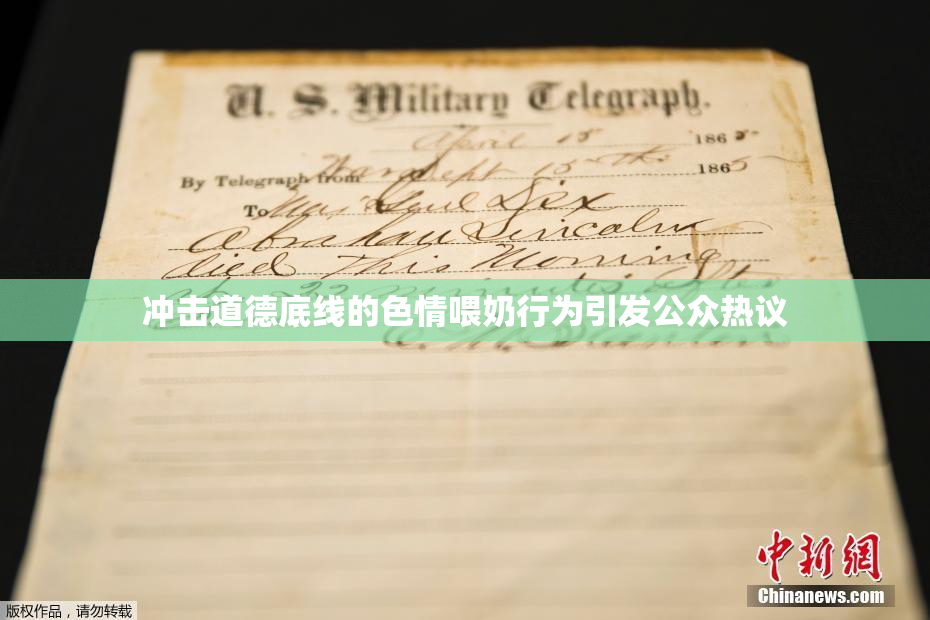 U. S. Military Telegraph.
April 15 1865
By Telegraph from War Dept 15th 1865
To Maj Genl Dix
Abraham Lincoln
died This Morning
22 minutes after
冲击道德底线的色情喂奶行为引发公众热议
E. M. Stanton
中新网
Chinanews.com
版权作品,请勿转载